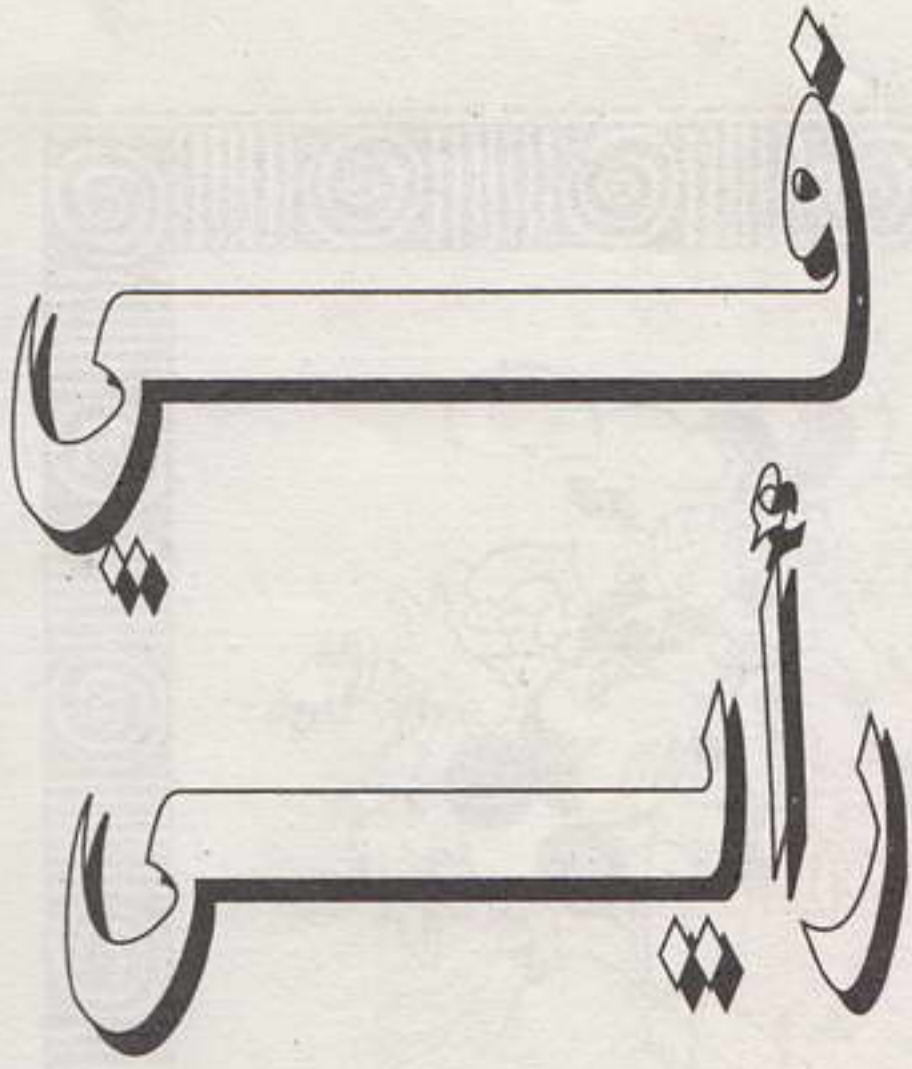 في
رأيى